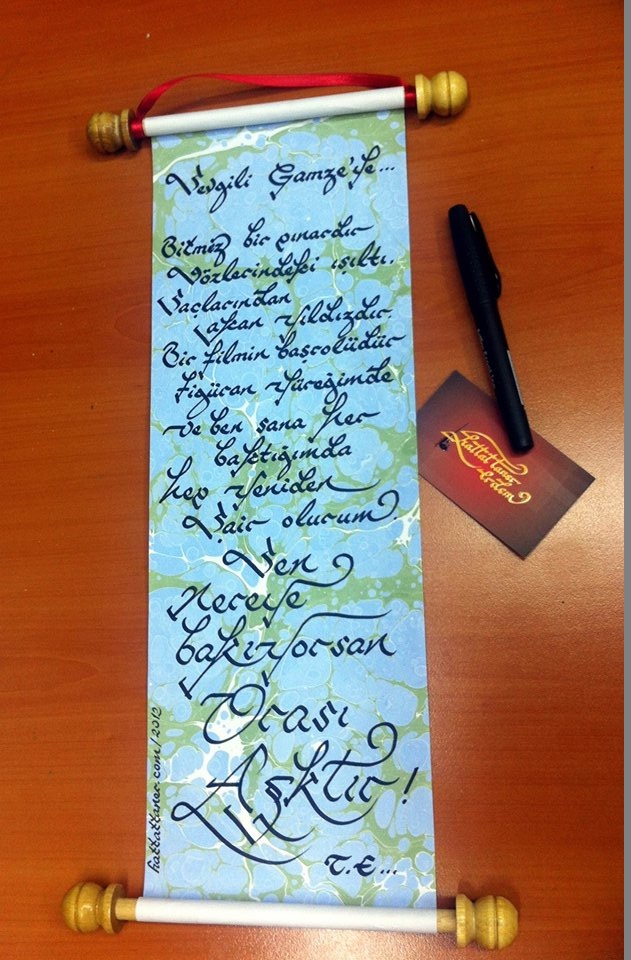 Sevgili Gamze'ye...
Bitmez bir pınardır
Gözlerindeki ışıltı.
Saçlarından
akan yıldızdır.
Bir filmin başrolüdür
figüran yüreğimde
ve ben sana her
baktığımda
hep yeniden
Şair olurum
Sen
Nereye
bakıyorsan
Orası
Aşktır!
T.E...
hattattaner.com/2012
hattat taner
erdem